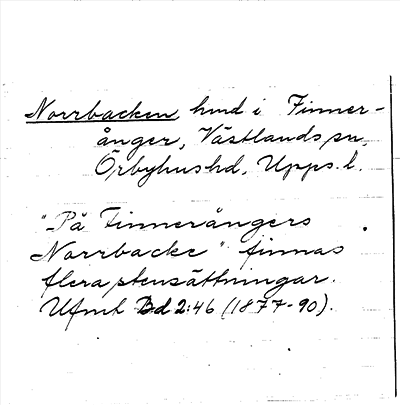 Norrbacken, hmd i Finner-
ånger, Västlands sn,
Örbyhus hd, Upps. l.
"På Finnerångers
Norrbacke" finnas
flera stensättningar.
Ufmt Bd 2:46 (1877-90).